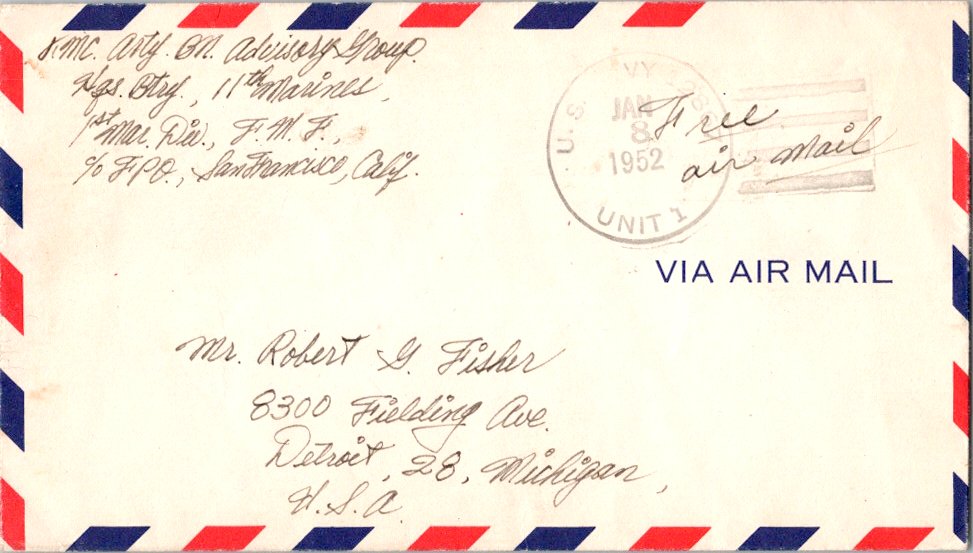 KMC. Arty. Bn. Advisory Group.
Hqs. Btry., 11th Marines,
1st Mar. Div., F.M.F.,
c/o FPO., San Francisco, Calif.
U.S.
VY
JAN
8
1952
UNIT 1
Free
air mail
VIA AIR MAIL
Mr. Robert G. Fisher
8300 Fielding Ave.
Detroit, 28, Michigan,
U.S.A.